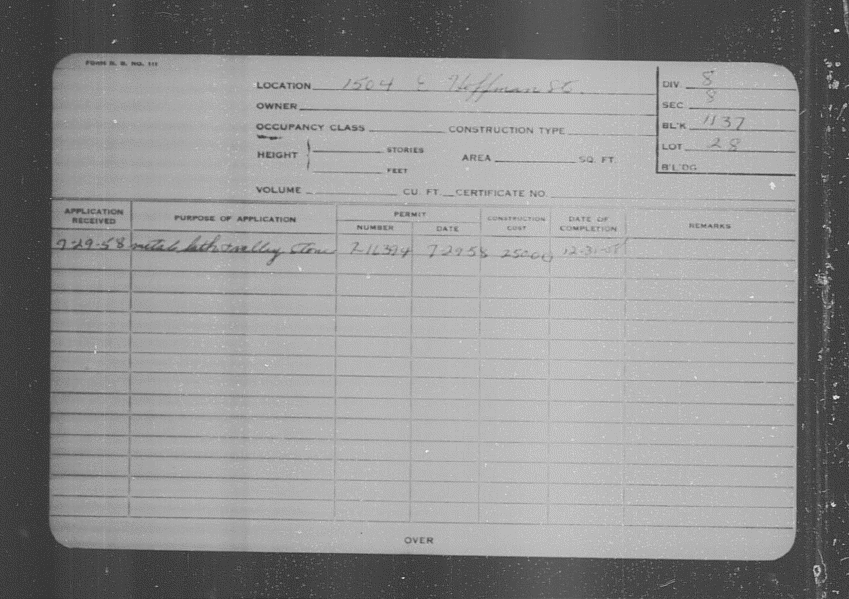 FORM B. B. NO. 111
LOCATION 1504 E Hoffman St.
DIV. 8
OWNER
SEC. 8
OCCUPANCY CLASS CONSTRUCTION TYPE
BL'K 1137
HEIGHT STORIES AREA SQ. FT.
LOT 28
FEET
B'L'DG
VOLUME CU. FT. CERTIFICATE NO.
APPLICATION RECEIVED PURPOSE OF APPLICATION PERMIT NUMBER DATE CONSTRUCTION COST DATE OF COMPLETION REMARKS
7-29-58 metal lath + valley stone 7-16394 7-29-58 250.00 12-31-58
OVER